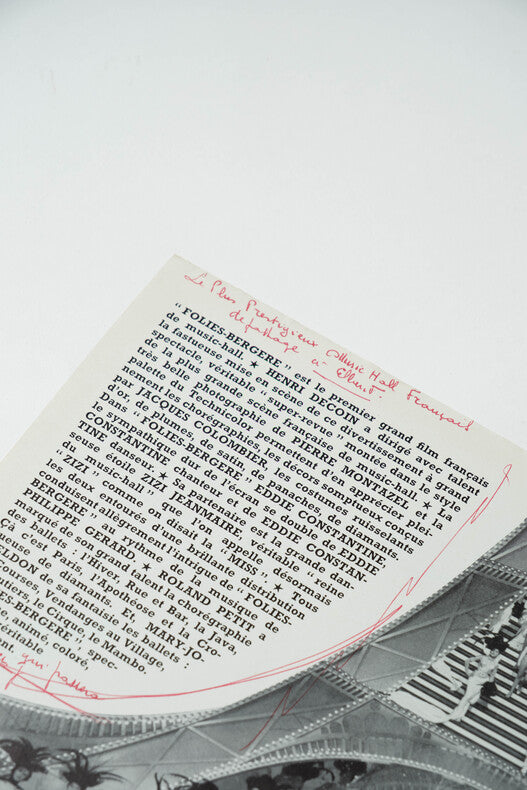 Le Plus Prestigieux Music Hall Français
de
" FOLIES-BERGERE " est le premier grand film français
de music-hall. ★ HENRI DECOIN a dirigé avec talent
la fastueuse mise en scène de ce divertissement à grand
spectacle, véritable " super-revue " montée dans le style
de la plus grande scène française de music-hall. ★ La
très belle photographie de PIERRE MONTAZEL et la
palette du Technicolor permettent d'en apprécier plei-
nement les chorégraphies, les décors somptueux conçus
par JACQUES COLOMBIER, les costumes ruisselants
d'or, de plumes, de satin, de panaches, de diamants.
Dans " FOLIES-BERGERE " EDDIE CONSTANTINE,
le sympathique dur de l'écran se double de EDDIE
CONSTANTINE chanteur et de EDDIE CONSTAN-
TINE danseur. ★ Sa partenaire est la grande dan-
seuse étoile ZIZI JEANMAIRE, véritable " reine
du music-hall " que l'on appelle désormais
" ZIZI " comme on disait la " MISS ". ★ Tous
les deux entourés d'une brillante distribution
conduisent allègrement l'intrigue de " FOLIES-
BERGÈRE " au rythme de la musique de
PHILIPPE GERARD. ★ ROLAND PETIT a
marqué de son grand talent la chorégraphie
des ballets : l'Hiver, Rue et Bar, la Java,
Ça c'est Paris, l'Apothéose et la Cro-
ueuse de diamants. Et, MARY-JO-
ELDON de sa fantaisie les ballets :
Courses, Vendanges au Village,
utiers, le Cirque, le Mambo.
ES-BERGERE " spec-
e, animé, coloré,
véritable
ent.
qui